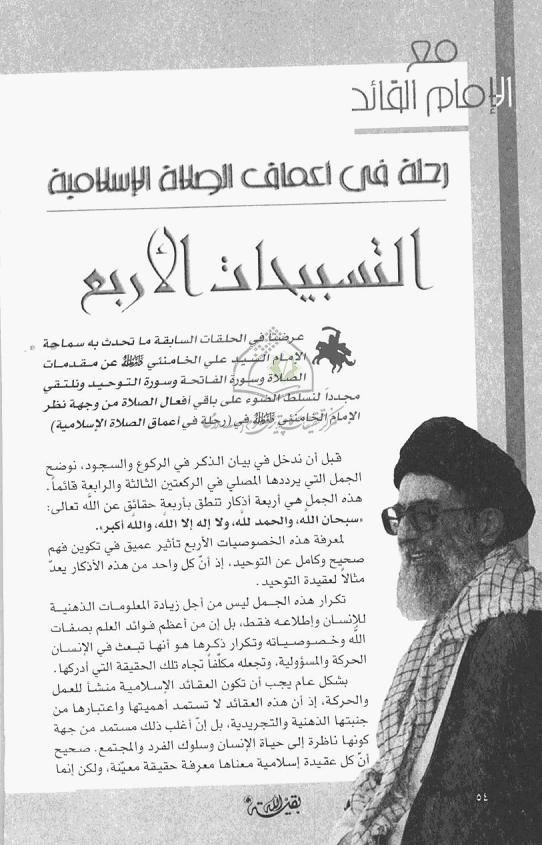 مع
الإمام القائد
رحلة في أعماق الصلاة الإسلامية
التسبيحات الأربع
عرضنا في الحلقات السابقة ما تحدث به سماحة
الإمام السيد علي الخامنئي عن مقدمات
الصلاة وسورة الفاتحة وسورة التوحيد ونلتقي
مجدداً لنسلط الضوء على باقي أفعال الصلاة من وجهة نظر
الإمام الخامنئي في (رحلة في أعماق الصلاة الإسلامية)
قبل أن ندخل في بيان الذكر في الركوع والسجود، نوضح
الجمل التي يرددها المصلي في الركعتين الثالثة والرابعة قائماً.
هذه الجمل هي أربعة أذكار تنطق بأربعة حقائق عن الله تعالى:
«سبحان الله، والحمد لله، ولا إله إلا الله، والله أكبر».
لمعرفة هذه الخصوصيات الأربع تأثير عميق في تكوين فهم
صحيح وكامل عن التوحيد، إذ أنّ كل واحد من هذه الأذكار يعدّ
مثالاً لعقيدة التوحيد.
تكرار هذه الجمل ليس من أجل زيادة المعلومات الذهنية
للإنسان وإطلاعه فقط، بل إن من أعظم فوائد العلم بصفات
الله وخصوصياته وتكرار ذكرها هو أنها تبعث في الإنسان
الحركة والمسؤولية، وتجعله مكلّفاً تجاه تلك الحقيقة التي أدركها.
بشكل عام يجب أن تكون العقائد الإسلامية منشأ للعمل
والحركة، إذ أن هذه العقائد لا تستمد أهميتها واعتبارها من
جنبتها الذهنية والتجريدية، بل إنّ أغلب ذلك مستمد من جهة
كونها ناظرة إلى حياة الإنسان وسلوك الفرد والمجتمع. صحيح
أنّ كل عقيدة إسلامية معناها معرفة حقيقة معيّنة، ولكن إنما
بقية الله
٥٤